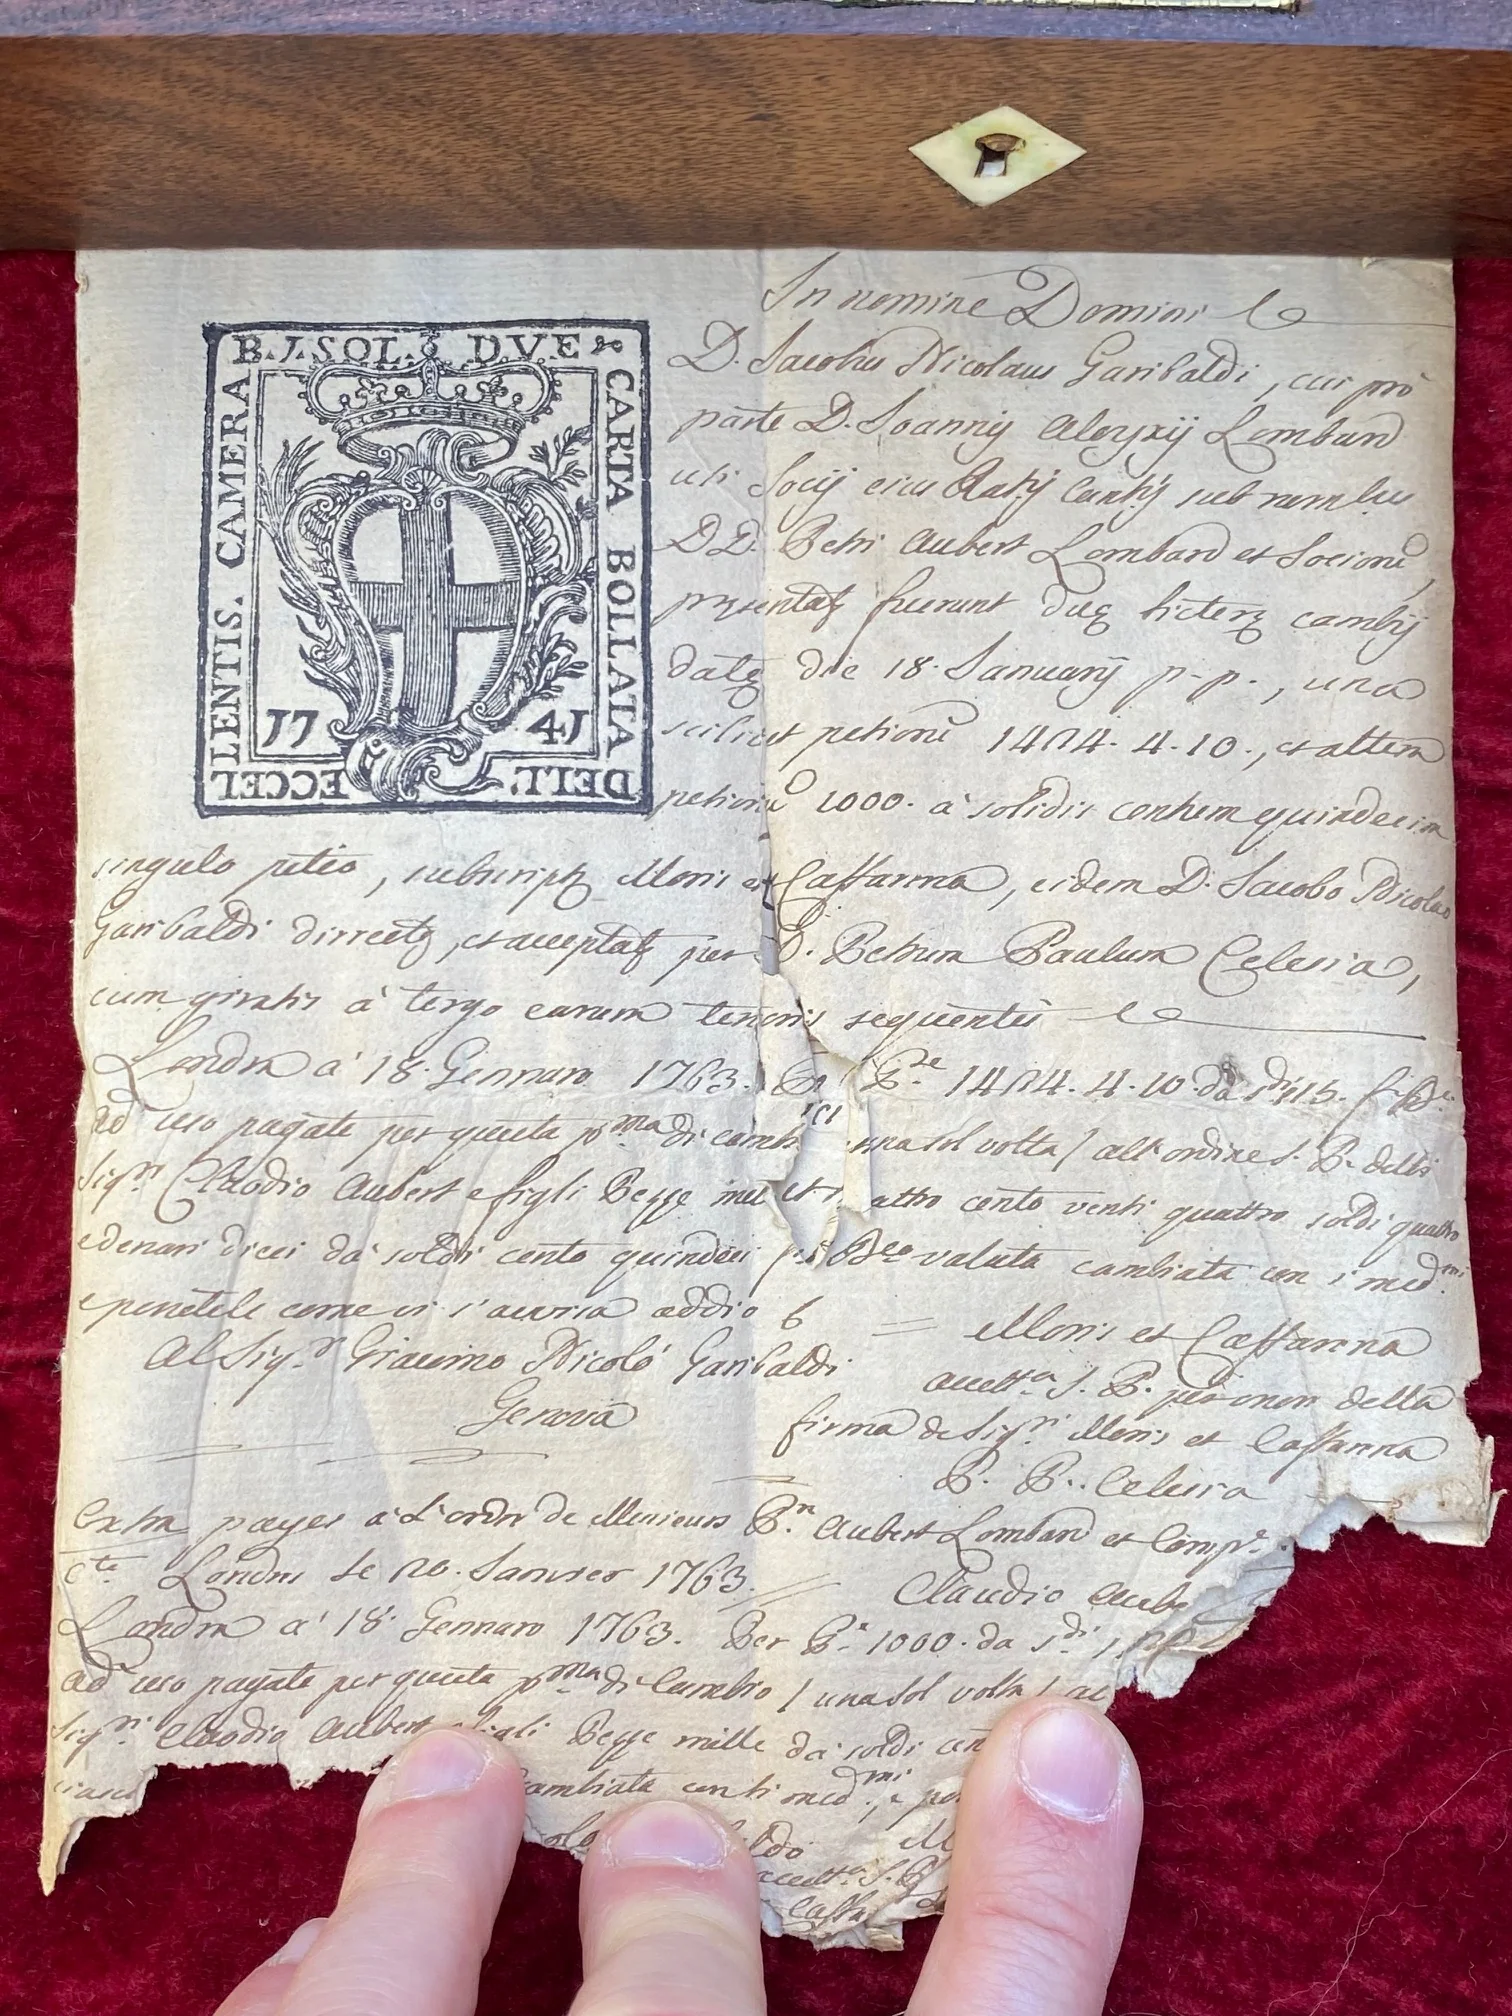 B. J. SOL. DVE
CARTA BOLLATA
DELL'
ECCEL
LENTIS. CAMERA
17 41
In nomine Domini
D. Jacobus Nicolaus Garibaldi, cui pro
parte D. Joannis Aloysij Lombard
uti Socij
DD. Petri Aubert Lombard et Sociorũ
presentatę fuerunt duę litterę cambij
datę die 18. Januarij p. p., una
scilicet petiorũ 1424. 4. 10., et altera
petiorũ 1000. à solidis centum quindecim
singulo petio, subscriptę Moris et Caffarena, eidem D. Jacobo Nicolao
Garibaldi directę, et acceptatę per D. Petrum Paulum Celesia,
cum giratis à tergo earum tenoris sequentis
Londra a' 18. Gennaro 1763. 1424. 4. 10. da s.di 115.
ad uso pagate per questa p.ma di camb una sol volta / all'ordine S. P. delli
Sig.ri Claodio Aubert e figli Pezze mil attro cento venti quattro soldi quattro
e denari dieci da' soldi cento quindeci valuta cambiata con i med.mi
e ponetele come vi s'avvisa addio
Moris et Caffarena
Al Sig.r Giacomo Nicolò Garibaldi
accett.a S. P. per onor della
Genova
firma de Sig.ri Moris et Caffarena
P. P. Celesia
Extra payes a L'ordre de Messieurs P.re Aubert Lombard et Comp.e
c.te Londres le 20. Janvier 1763.
Claudio Aube
Londra a' 18. Gennaro 1763. Per P.e 1000. da s.di
ad uso pagate per questa p.ma di Cambio / una sol volta /
Sig.ri Claodio Aubert e figli Pezze mille da' soldi cen
ciasc cambiata con li med.mi, e po
accett.a S. P.
Caffa